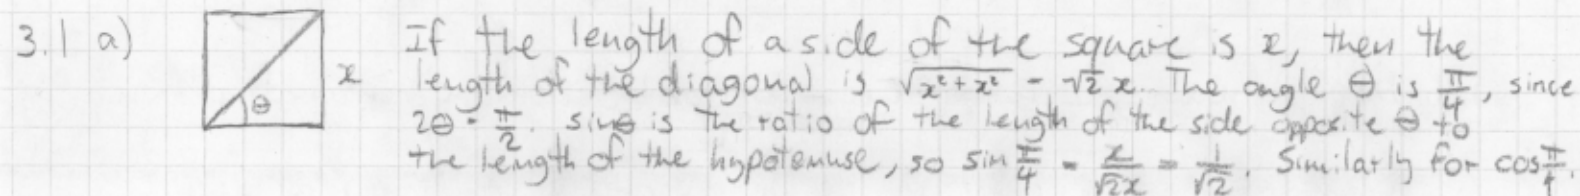 3.1 a) If the length of a side of the square is x, then the
x length of the diagonal is √(x² + x²) = √2 x. The angle θ is π/4, since
θ 2θ = π/2. sinθ is the ratio of the length of the side opposite θ to
the length of the hypotenuse, so sin π/4 = x/√2x = 1/√2. Similarly for cos π/4.